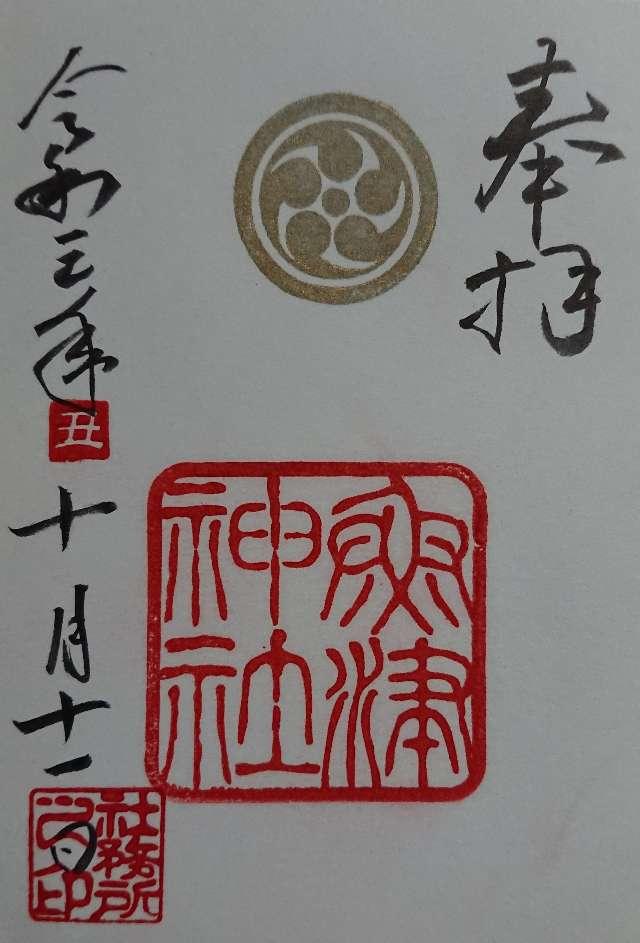 奉拝
津
神社
令和三年
丑
十月十一日
社務所
印